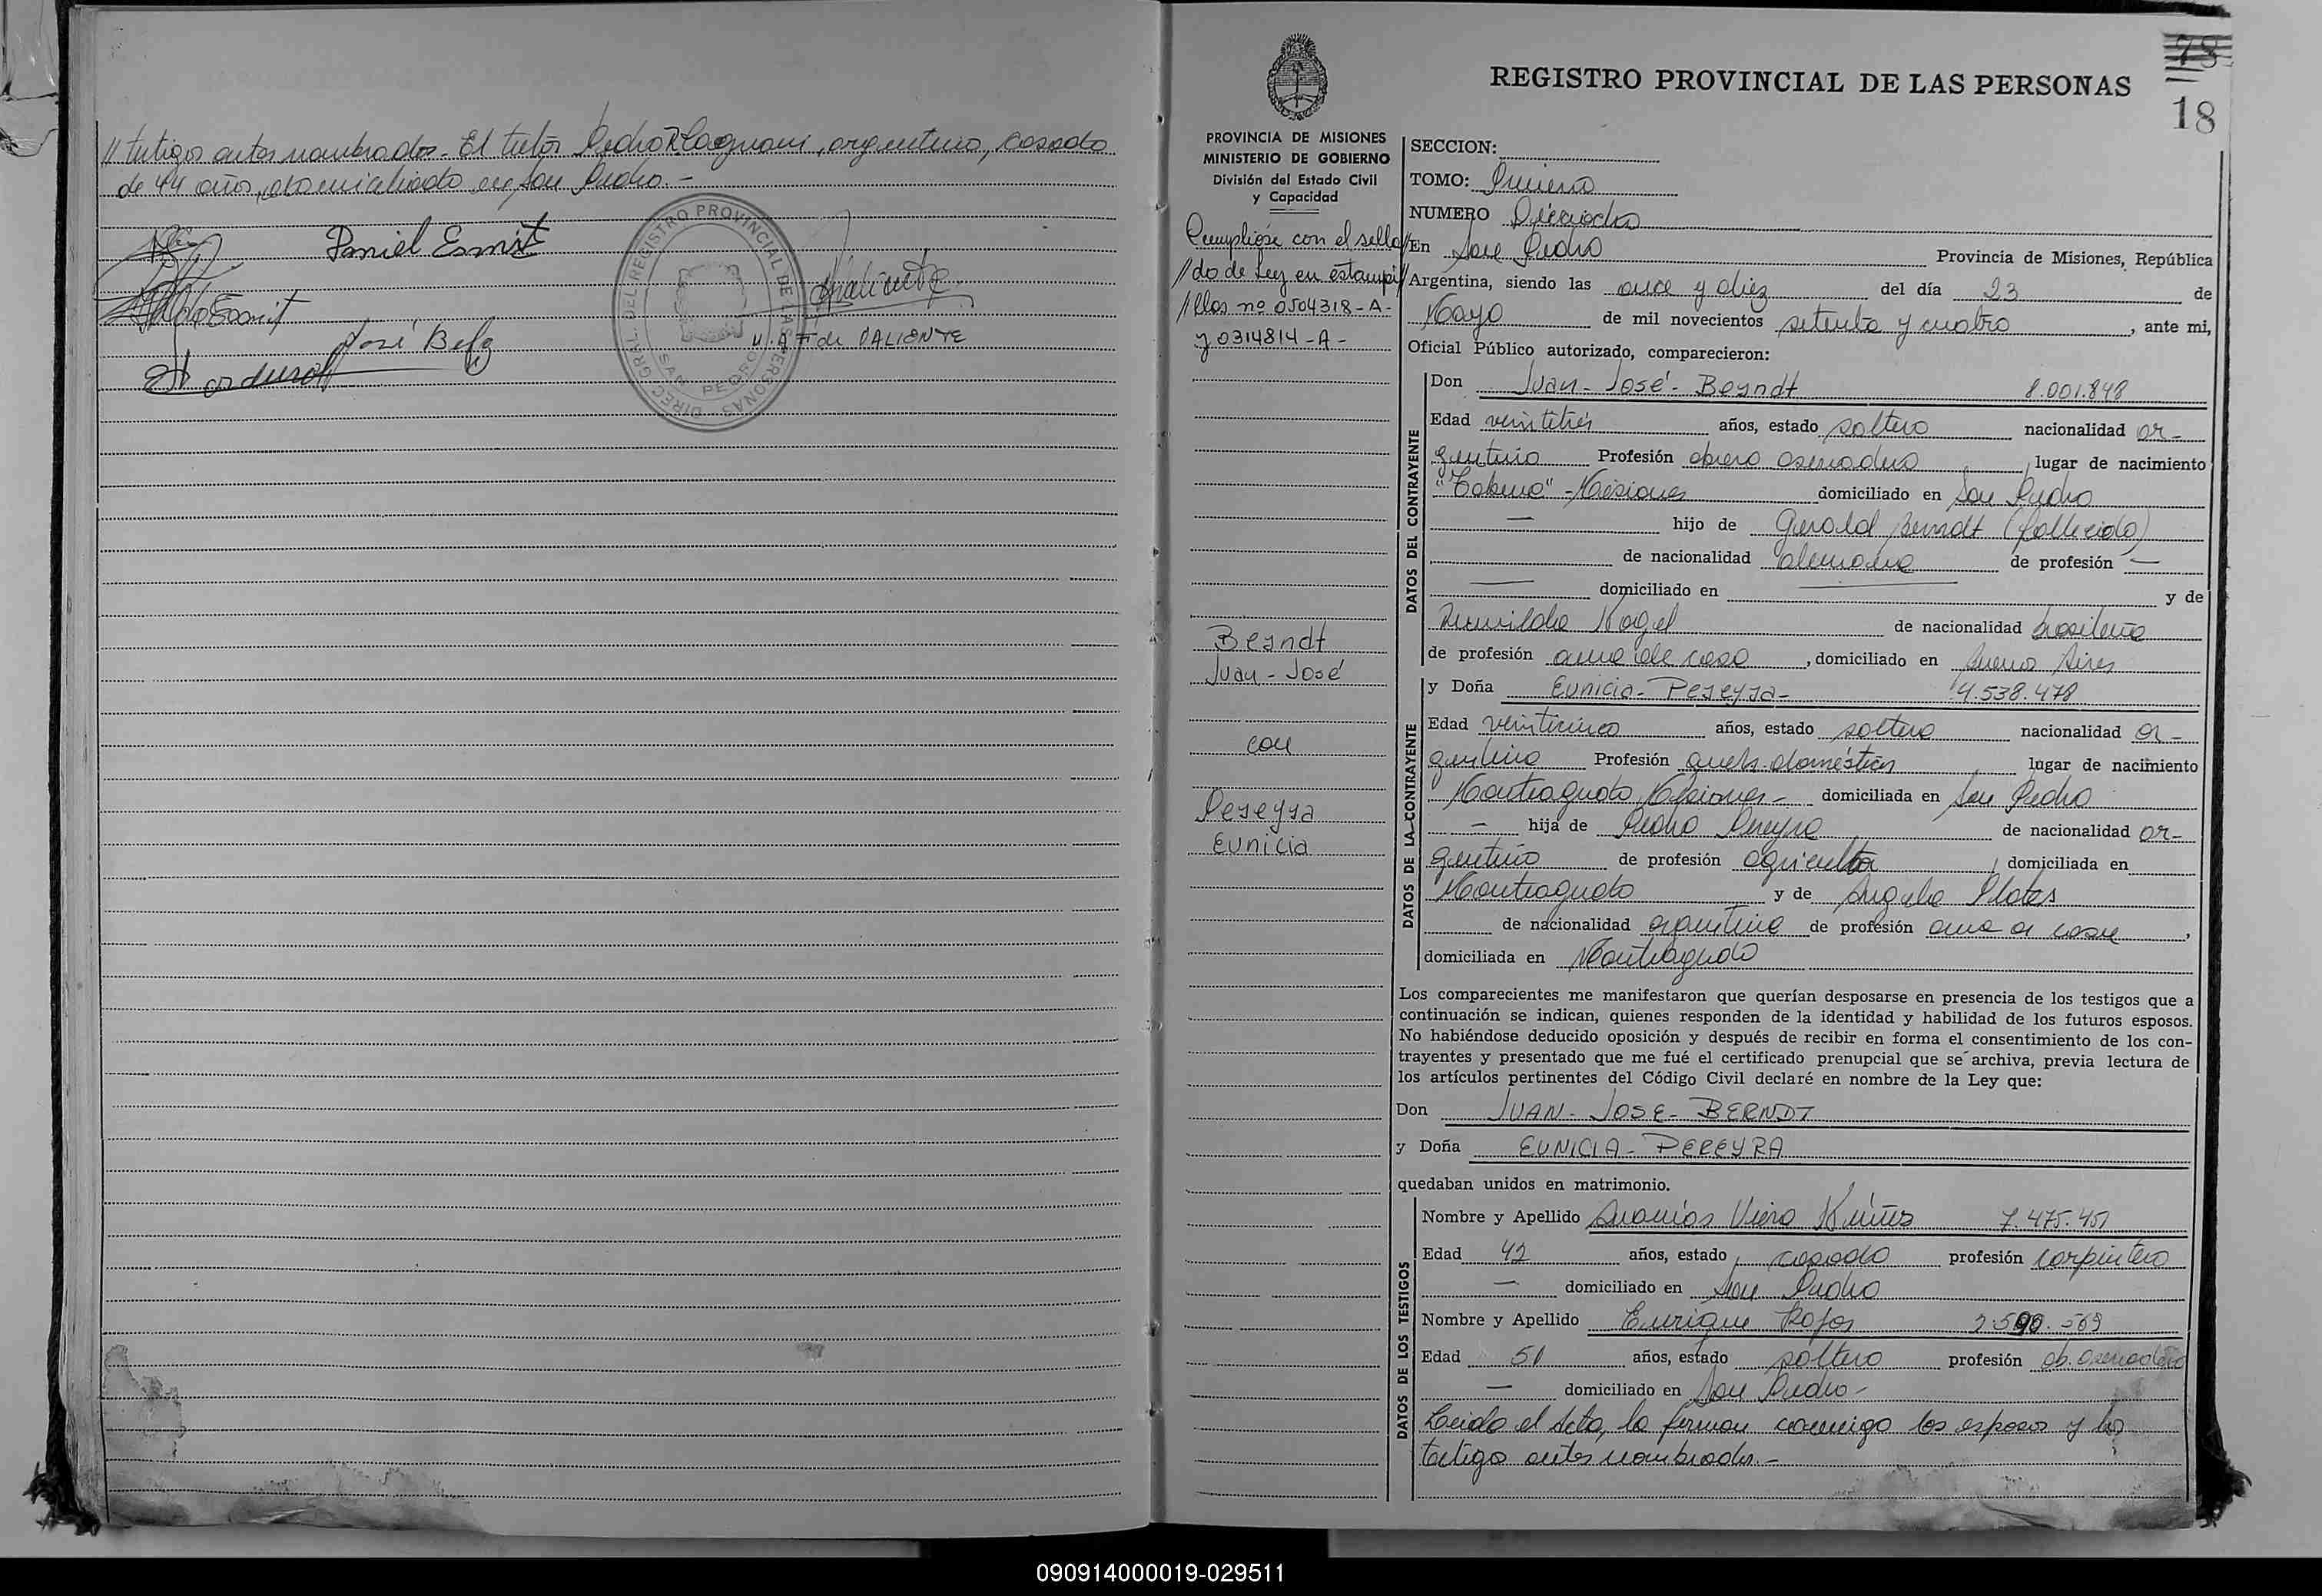 // testigos antes nombrados.- El tutor Pedro argentino, casado
de 44 años, domiciliado en San Pedro.-
Daniel Esmit
José
M. A. F. de VALIENTE
DIREC. GRAL. DEL REGISTRO PROVINCIAL DE LAS PERSONAS
SAN PEDRO
78
18
REGISTRO PROVINCIAL DE LAS PERSONAS
PROVINCIA DE MISIONES
MINISTERIO DE GOBIERNO
División del Estado Civil
y Capacidad
Cumpliose con el sella//
//do de Ley en estampi//
//llas nº 0504318-A-
y 0314814-A-
Berndt
Juan-José
con
Pereyra
Eunicia
SECCION:
TOMO: Primero
NUMERO Dieciocho
En San Pedro Provincia de Misiones, República
Argentina, siendo las once y diez del día 23 de
Mayo de mil novecientos setenta y cuatro, ante mi,
Oficial Público autorizado, comparecieron:
DATOS DEL CONTRAYENTE
Don Juan-José-Berndt 8.001.848
Edad veintitrés años, estado soltero nacionalidad ar-
gentino Profesión obrero aserradero, lugar de nacimiento
"Tabuno" - Misiones domiciliado en San Pedro
— hijo de Gerold Berndt (fallecido)
de nacionalidad alemana de profesión —
— domiciliado en — y de
Nagel de nacionalidad brasileña
de profesión ama de casa, domiciliado en Buenos Aires
DATOS DE LA CONTRAYENTE
y Doña Eunicia-Pereyra- 4.538.478
Edad veinticinco años, estado soltera nacionalidad ar-
gentina Profesión queh. domésticos lugar de nacimiento
Montiagudo Misiones- domiciliada en San Pedro
— hija de Pedro Pereyra de nacionalidad ar-
gentino de profesión agricultor, domiciliada en
Montiagudo y de Angela Plates
de nacionalidad argentina de profesión ama de casa,
domiciliada en Montiagudo
Los comparecientes me manifestaron que querían desposarse en presencia de los testigos que a
continuación se indican, quienes responden de la identidad y habilidad de los futuros esposos.
No habiéndose deducido oposición y después de recibir en forma el consentimiento de los con-
trayentes y presentado que me fué el certificado prenupcial que se archiva, previa lectura de
los artículos pertinentes del Código Civil declaré en nombre de la Ley que:
Don JUAN-JOSE-BERNDT
y Doña EUNICIA-PEREYRA
quedaban unidos en matrimonio.
DATOS DE LOS TESTIGOS
Nombre y Apellido Ananías Viera Núñez 7.475.451
Edad 42 años, estado casado profesión carpintero
— domiciliado en San Pedro
Nombre y Apellido Enrique Rojas 2.590.569
Edad 51 años, estado soltero profesión ob. aserradero
— domiciliado en San Pedro-
Leída el Acta, la firman conmigo los esposos y los
testigo antes nombrados.-
090914000019-029511